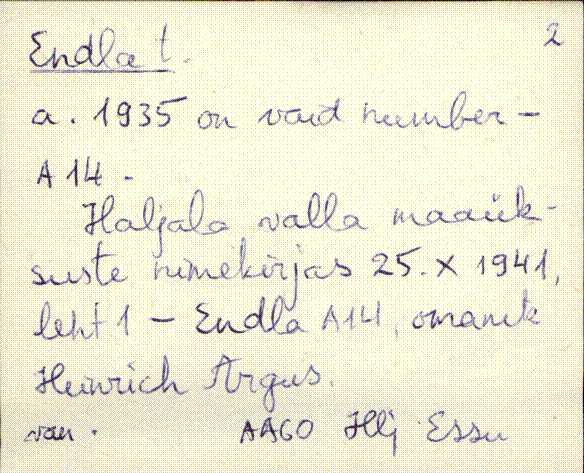 2
Endla t.
a. 1935 on vaid number -
A 14 -
Haljala valla maaük-
suste nimekirjas 25. X 1941,
leht 1 - Endla A14, omanik
Heinrich Argus.
van. AAGO Hlj Essu